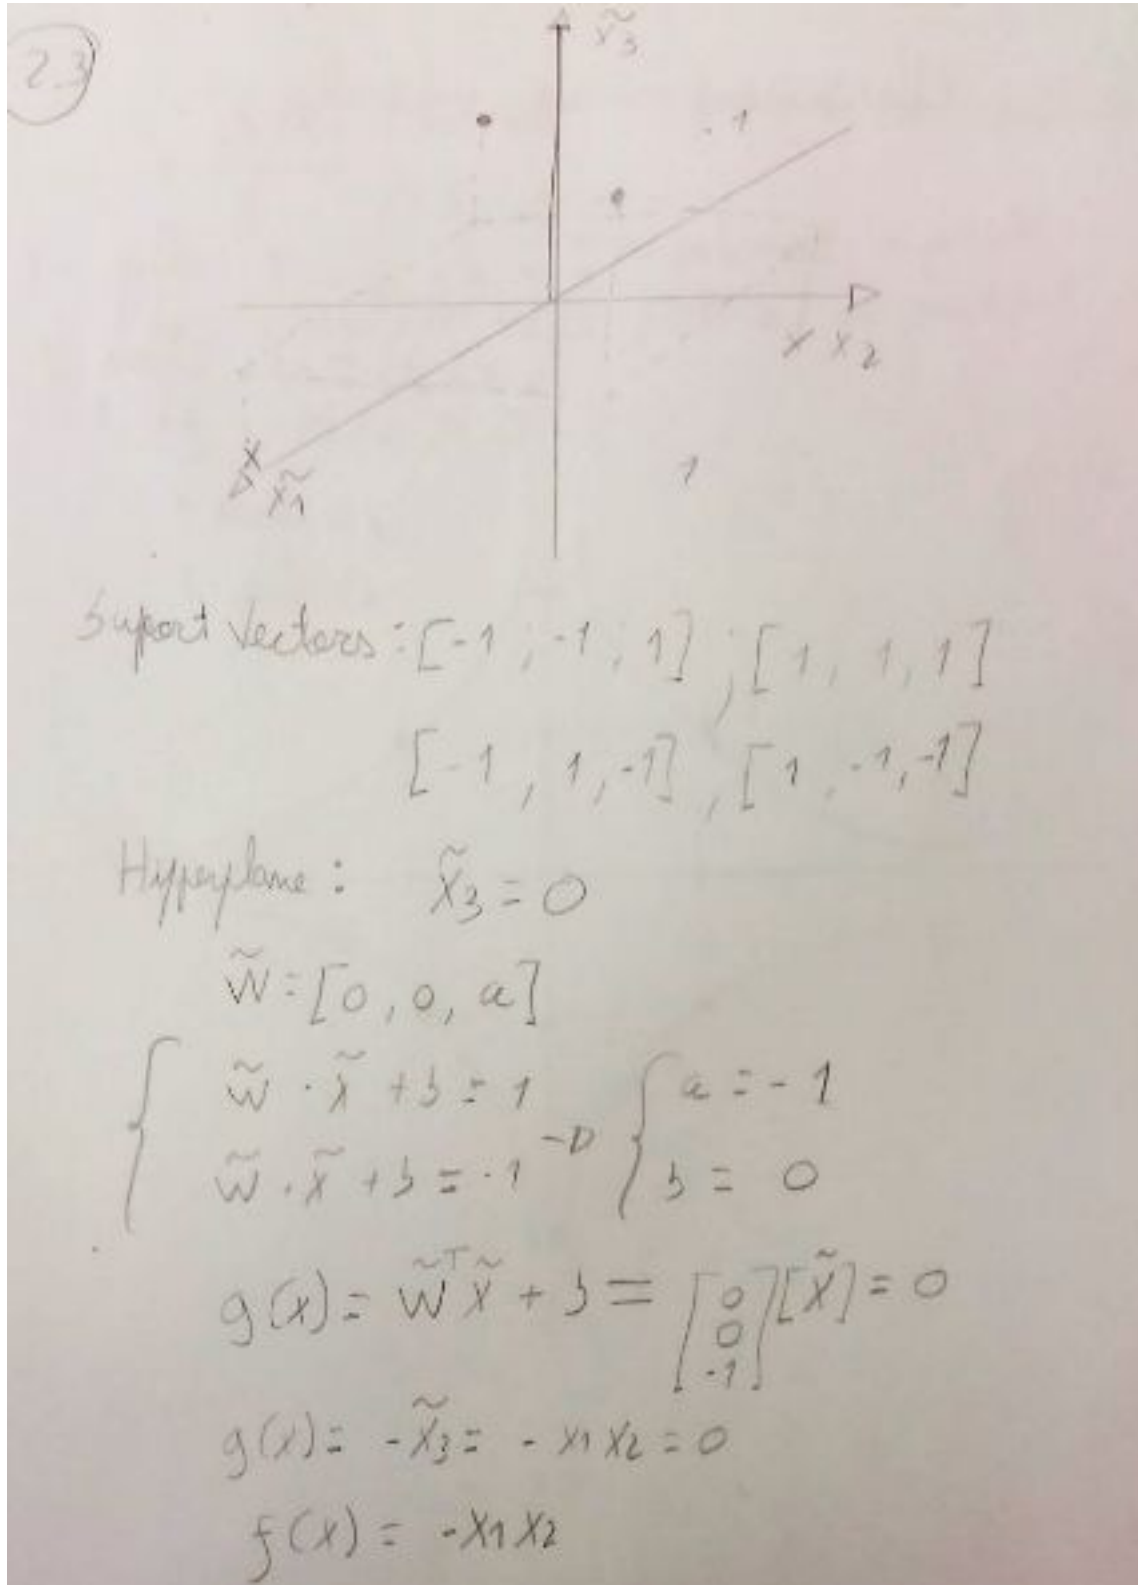 2.3
x̃3
-1
x x2
x
x̃1
1
Suport Vectors: [-1, -1, 1] ; [1, 1, 1]
[-1, 1, -1] , [1, -1, -1]
Hyperplane: x̃3 = 0
w̃ = [0, 0, a]
w̃ · x̃ + b = 1
w̃ · x̃ + b = -1 → { a = -1
b = 0
g(x) = w̃ᵀx̃ + b = [0 0 -1] [x̃] = 0
g(x) = -x̃3 = - x1 x2 = 0
f(x) = -x1 x2